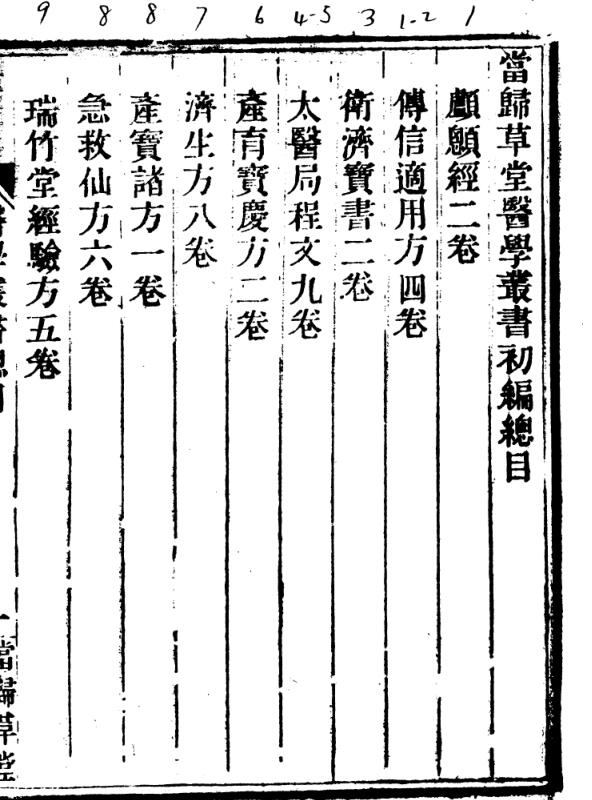 9 8 8 7 6 4-5 3 1-2 1
當歸草堂醫學叢書初編總目
顱顖經二卷
傳信適用方四卷
衛濟寶書二卷
太醫局程文九卷
產育寶慶方二卷
濟生方八卷
產寶諸方一卷
急救仙方六卷
瑞竹堂經驗方五卷
一 當歸草堂